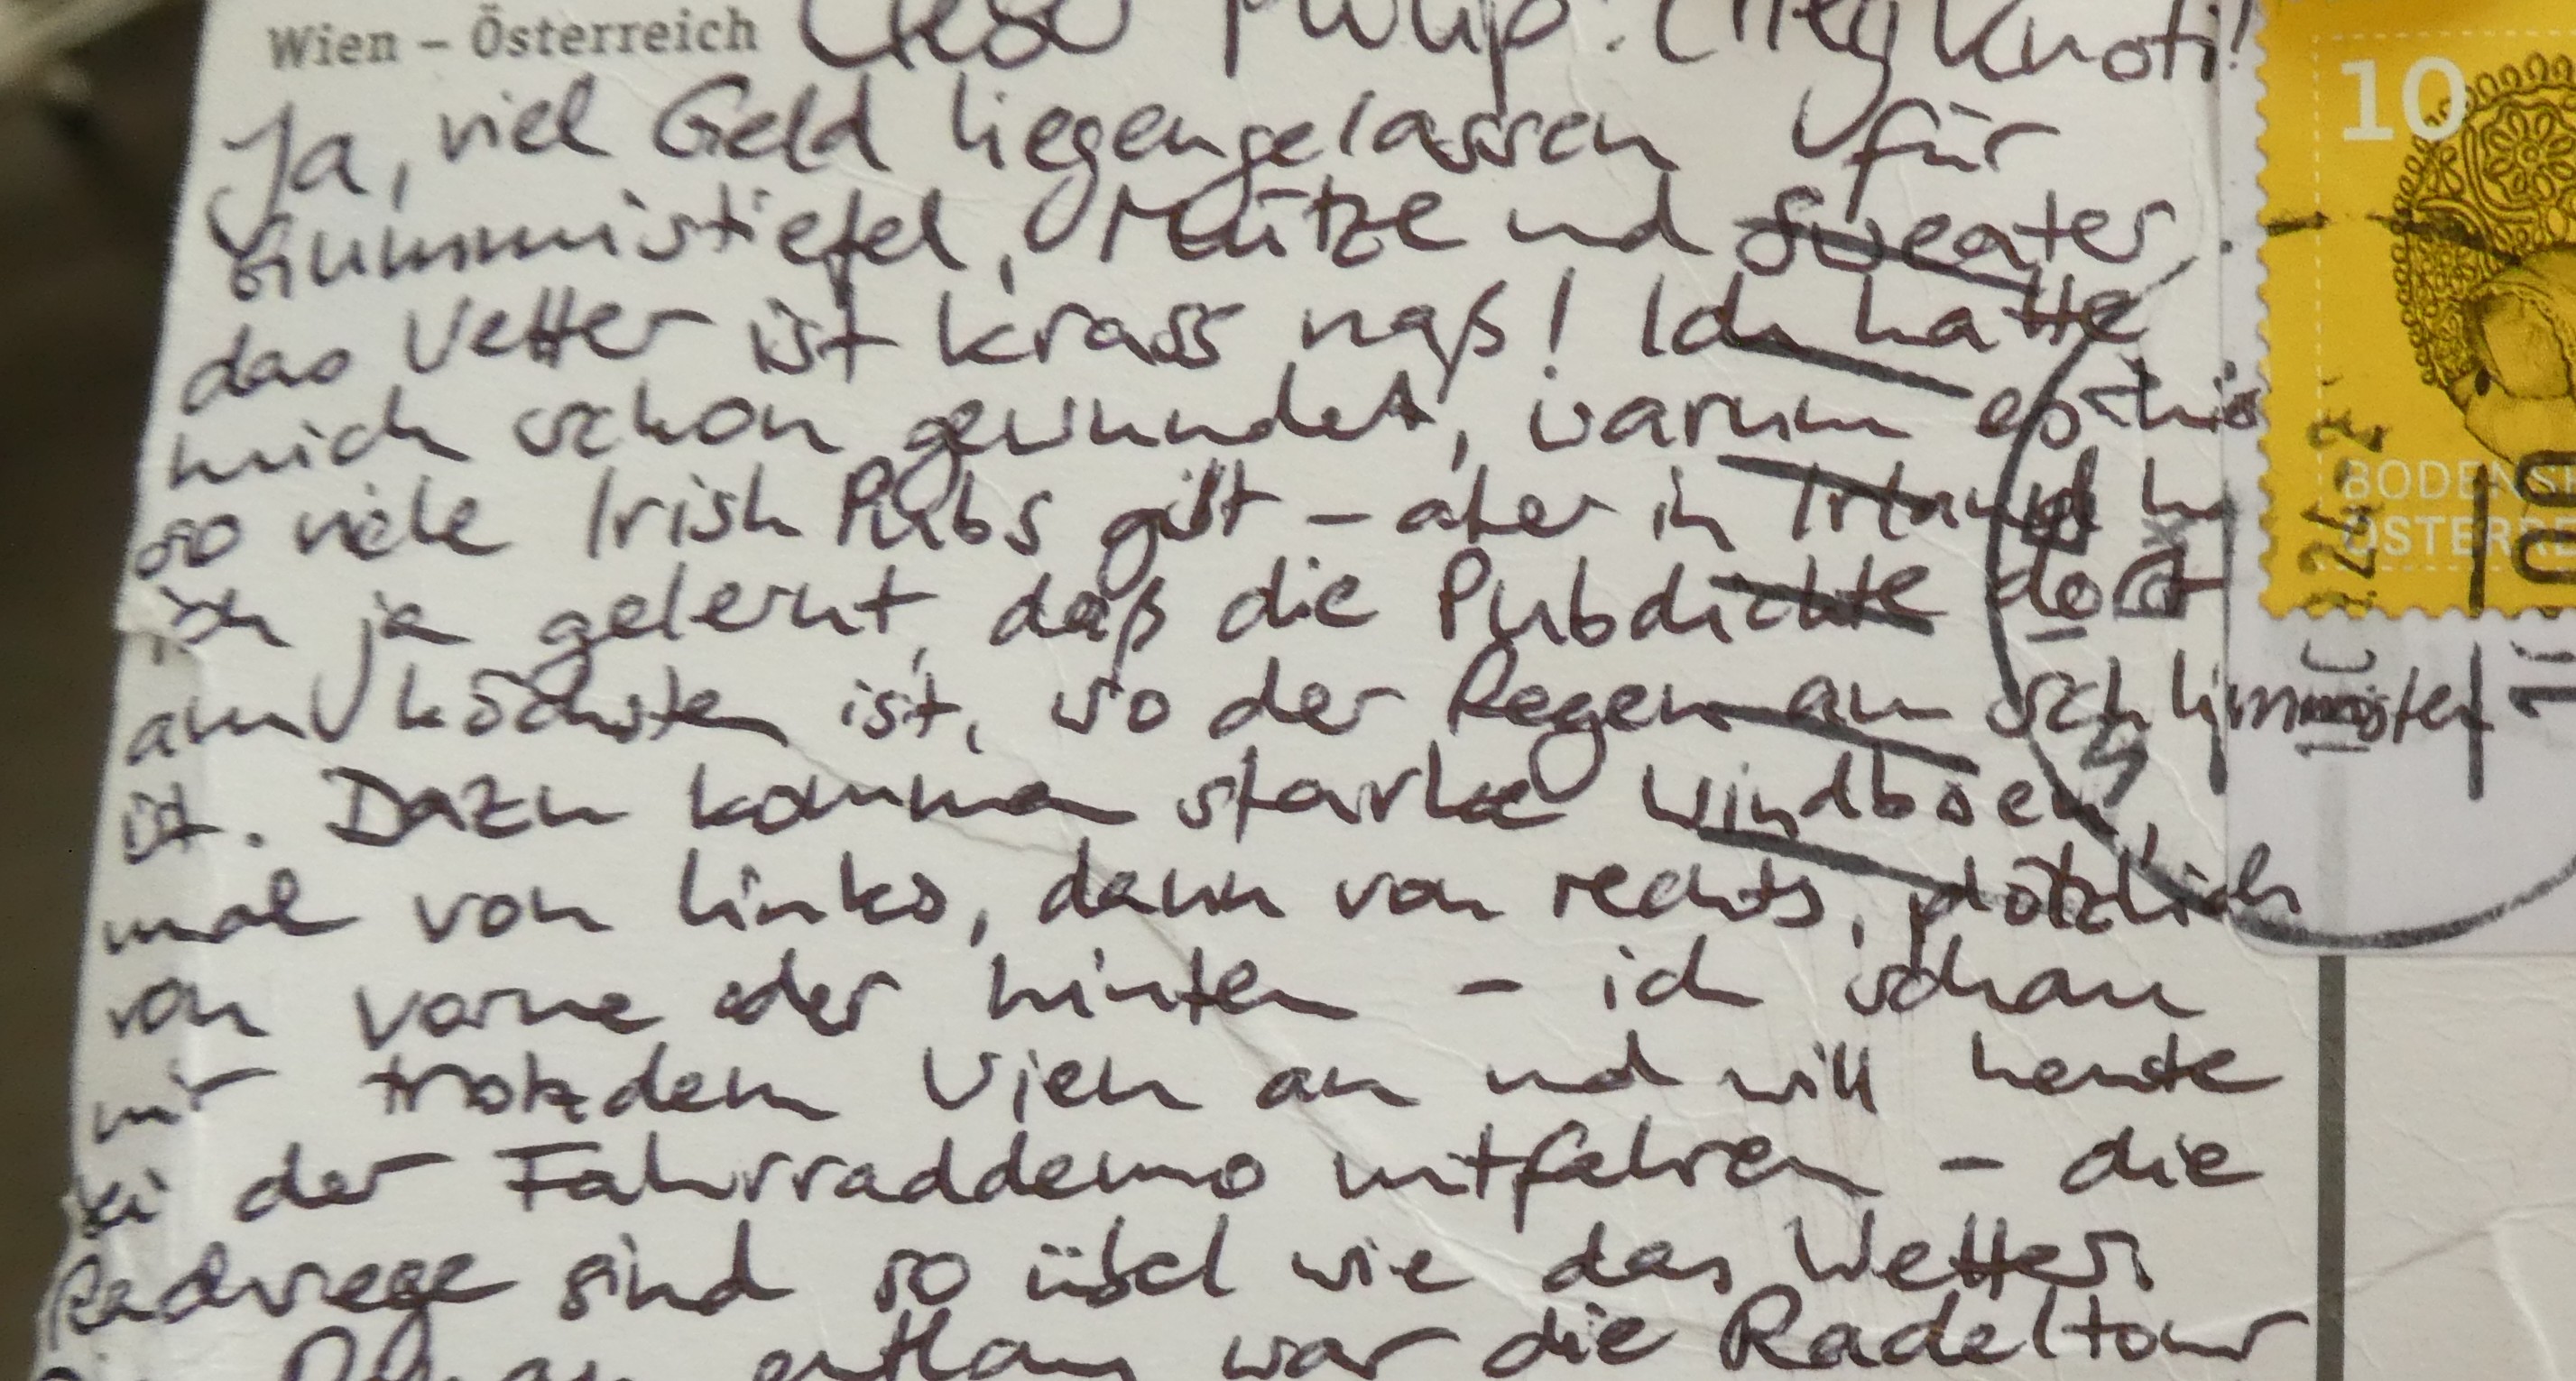 Wien – Österreich
Philip! (Hey Knoti!
Ja, viel Geld liegengelassen für
Gummistiefel, Mütze und Sweater.
das Wetter ist krass naß! Ich hatte
mich schon gewundert, warum es hier
so viele Irish Pubs gibt – aber in Irland
ich ja gelernt, daß die Pubdichte dort
am höchsten ist, wo der Regen am schlimmsten
ist. Dazu kommen starke Windböen,
mal von links, dann von rechts, plötzlich
von vorne oder hinten – ich schau
mir trotzdem Wien an und will heute
bei der Fahrraddemo mitfahren – die
Radwege sind so übel wie das Wetter.
entlang war die Radeltour
10
BODENS
ÖSTERRE